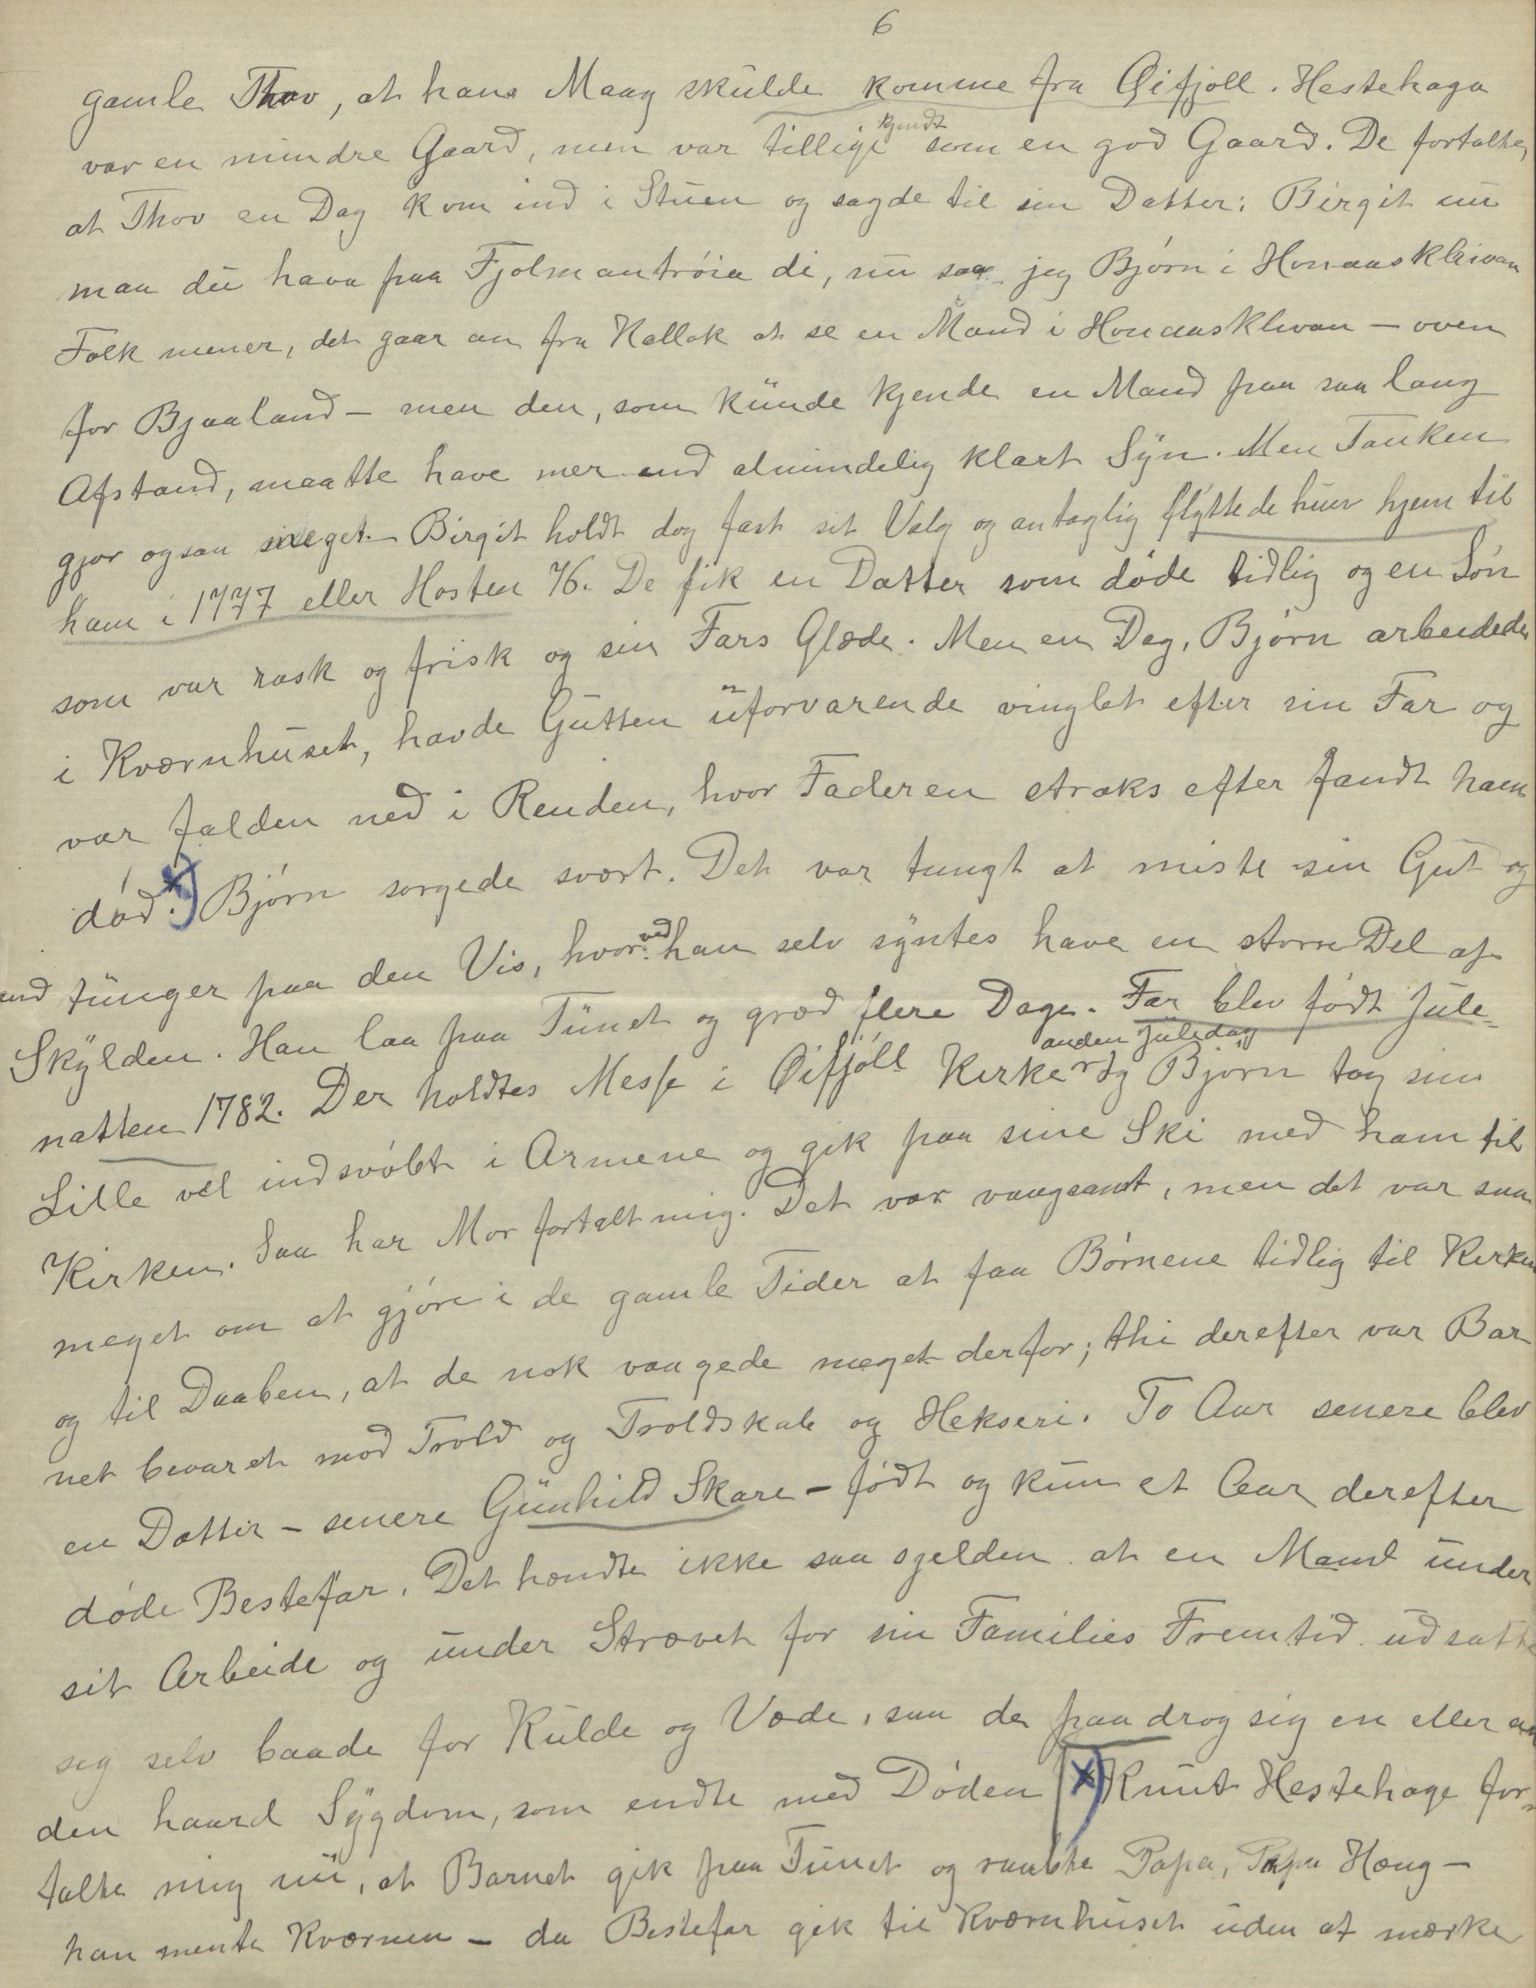 6
gamle Thov, at hans Maag skulde komme fra Øifjøll. Hestehaga
var en mindre Gaard, men var tillige kjendt som en god Gaard. De fortalte,
at Thov en Dag kom ind i Stuen og sagde til sin Datter: Birgit nu
maa du hava paa Fjolmantrøia di, nu saa jeg Bjørn i Honaaskleivan
Folk mener, det gaar an fra Kallak at se en Mand i Honaasklivan – oven
for Bjaaland – men den, som kunde kjende en Mand paa saa lang
Afstand, maatte have mer end almindelig klart Syn. Men Tanken
gjør ogsaa meget. Birgit holdt dog fast sit Valg og antaglig flyttede hun hjem til
ham i 1777 eller Høsten 76. De fik en Datter som døde tidlig og en Søn
som var rask og frisk og sin Fars Glæde. Men en Dag, Bjørn arbeidede
i Kværnhuset, havde Gutten uforvarende vinglet efter sin Far og
var falden ned i Renden, hvor Faderen straks efter fandt ham
død. x) Bjørn sørgede svært. Det var tungt at miste sin Gut og
end tunger paa den Vis, hvorved han selv syntes have en større Del af
Skylden. Han laa paa Tunet og græd flere Dage. Far blev født Jule-
natten 1782. Der holdtes Messe i Øifjøll Kirke anden Juledag og Bjørn tog sin
Lille vel indsvøbt i Armene og gik paa sine Ski med ham til
Kirken. Saa har Mor fortalt mig. Det var vaagsamt, men det var saa
meget om at gjøre i de gamle Tider at faa Børnene tidlig til Kirken
og til Daaben, at de nok vaagede meget derfor; thi derefter var Bar
net bevaret mod Trold og Troldskab og Hekseri. To Aar senere blev
en Datter – senere Gunhild Skare – født og kun et Aar derefter
døde Bestefar. Det hændte ikke saa sjelden at en Mand under
sit Arbeide og under Strævet for sin Families Fremtid udsatte
sig selv baade for Kulde og Væde, saa de paadrog sig en eller an
den haard Sygdom, som endte med Døden x) Knut Hestehage for-
talte mig nu, at Barnet gik paa Tunet og raabte Papa, Papa Hæng –
han mente Kværnen – da Bestefar gik til Kværnhuset uden at mærke